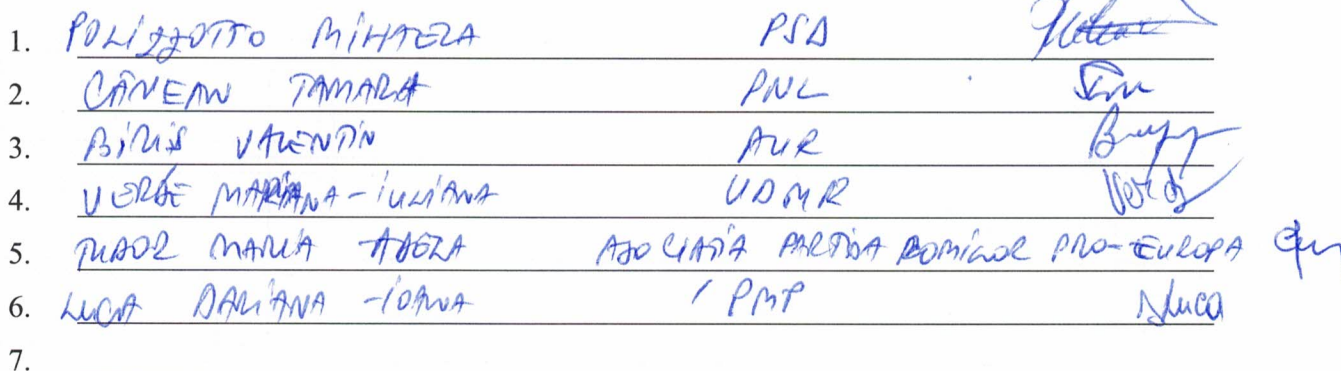 1. POLIZZOTTO MIHAELA PSD
2. CÂNEAN TAMARA PNL
3. BIRIS VALENTIN AUR
4. VERDE MARIANA-IULIANA UDMR
5. TUDOR MARIA ADELA ASOCIATIA PARTIDA ROMILOR PRO-EUROPA
6. LUCA DARIANA-IOANA PMP Luca
7.